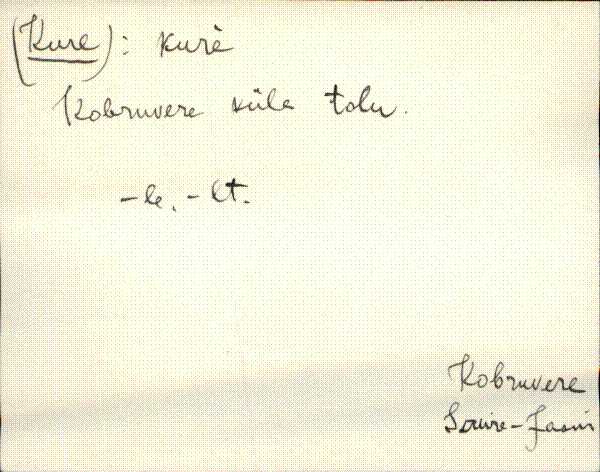 (Kure): kurè
Kobruvere küla talu.
-le, -lt.
Kobruvere
Suure-Jaani